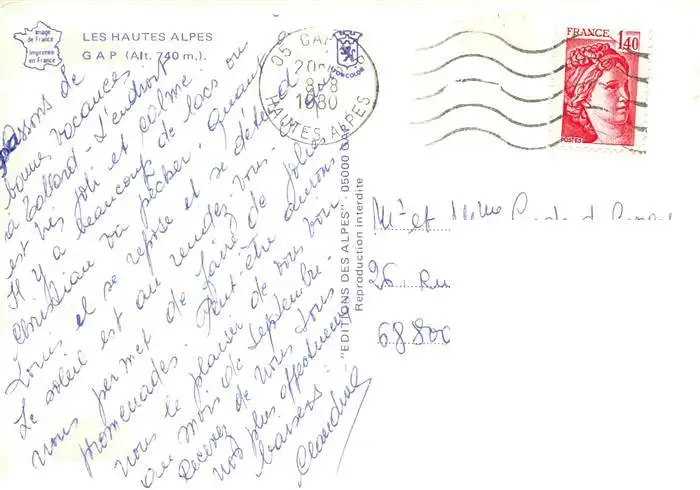 Image
de France
Imprimée
en France
LES HAUTES ALPES
GAP (Alt. 740 m.).
passons de
bonnes vacances
à Tallard - L'endroit
est très joli et calme.
Il y a beaucoup de lacs ou
Christian va pêcher. Quant à
Louis il se repose et se détend
Le soleil est au rendez vous
nous permet de faire de jolies
promenades. Peut-être aurons
nous le plaisir de vous voir
au mois de Septembre.
Recevez de nous tous
nos plus affectueux
baisers.
Claudine
"EDITIONS DES ALPES" - 05000 GAP
Reproduction interdite
05 GAP
8-8
1980
HAUTES ALPES
FRANCE
1,40
POSTES
Mr et Mme
26, Ru
68800